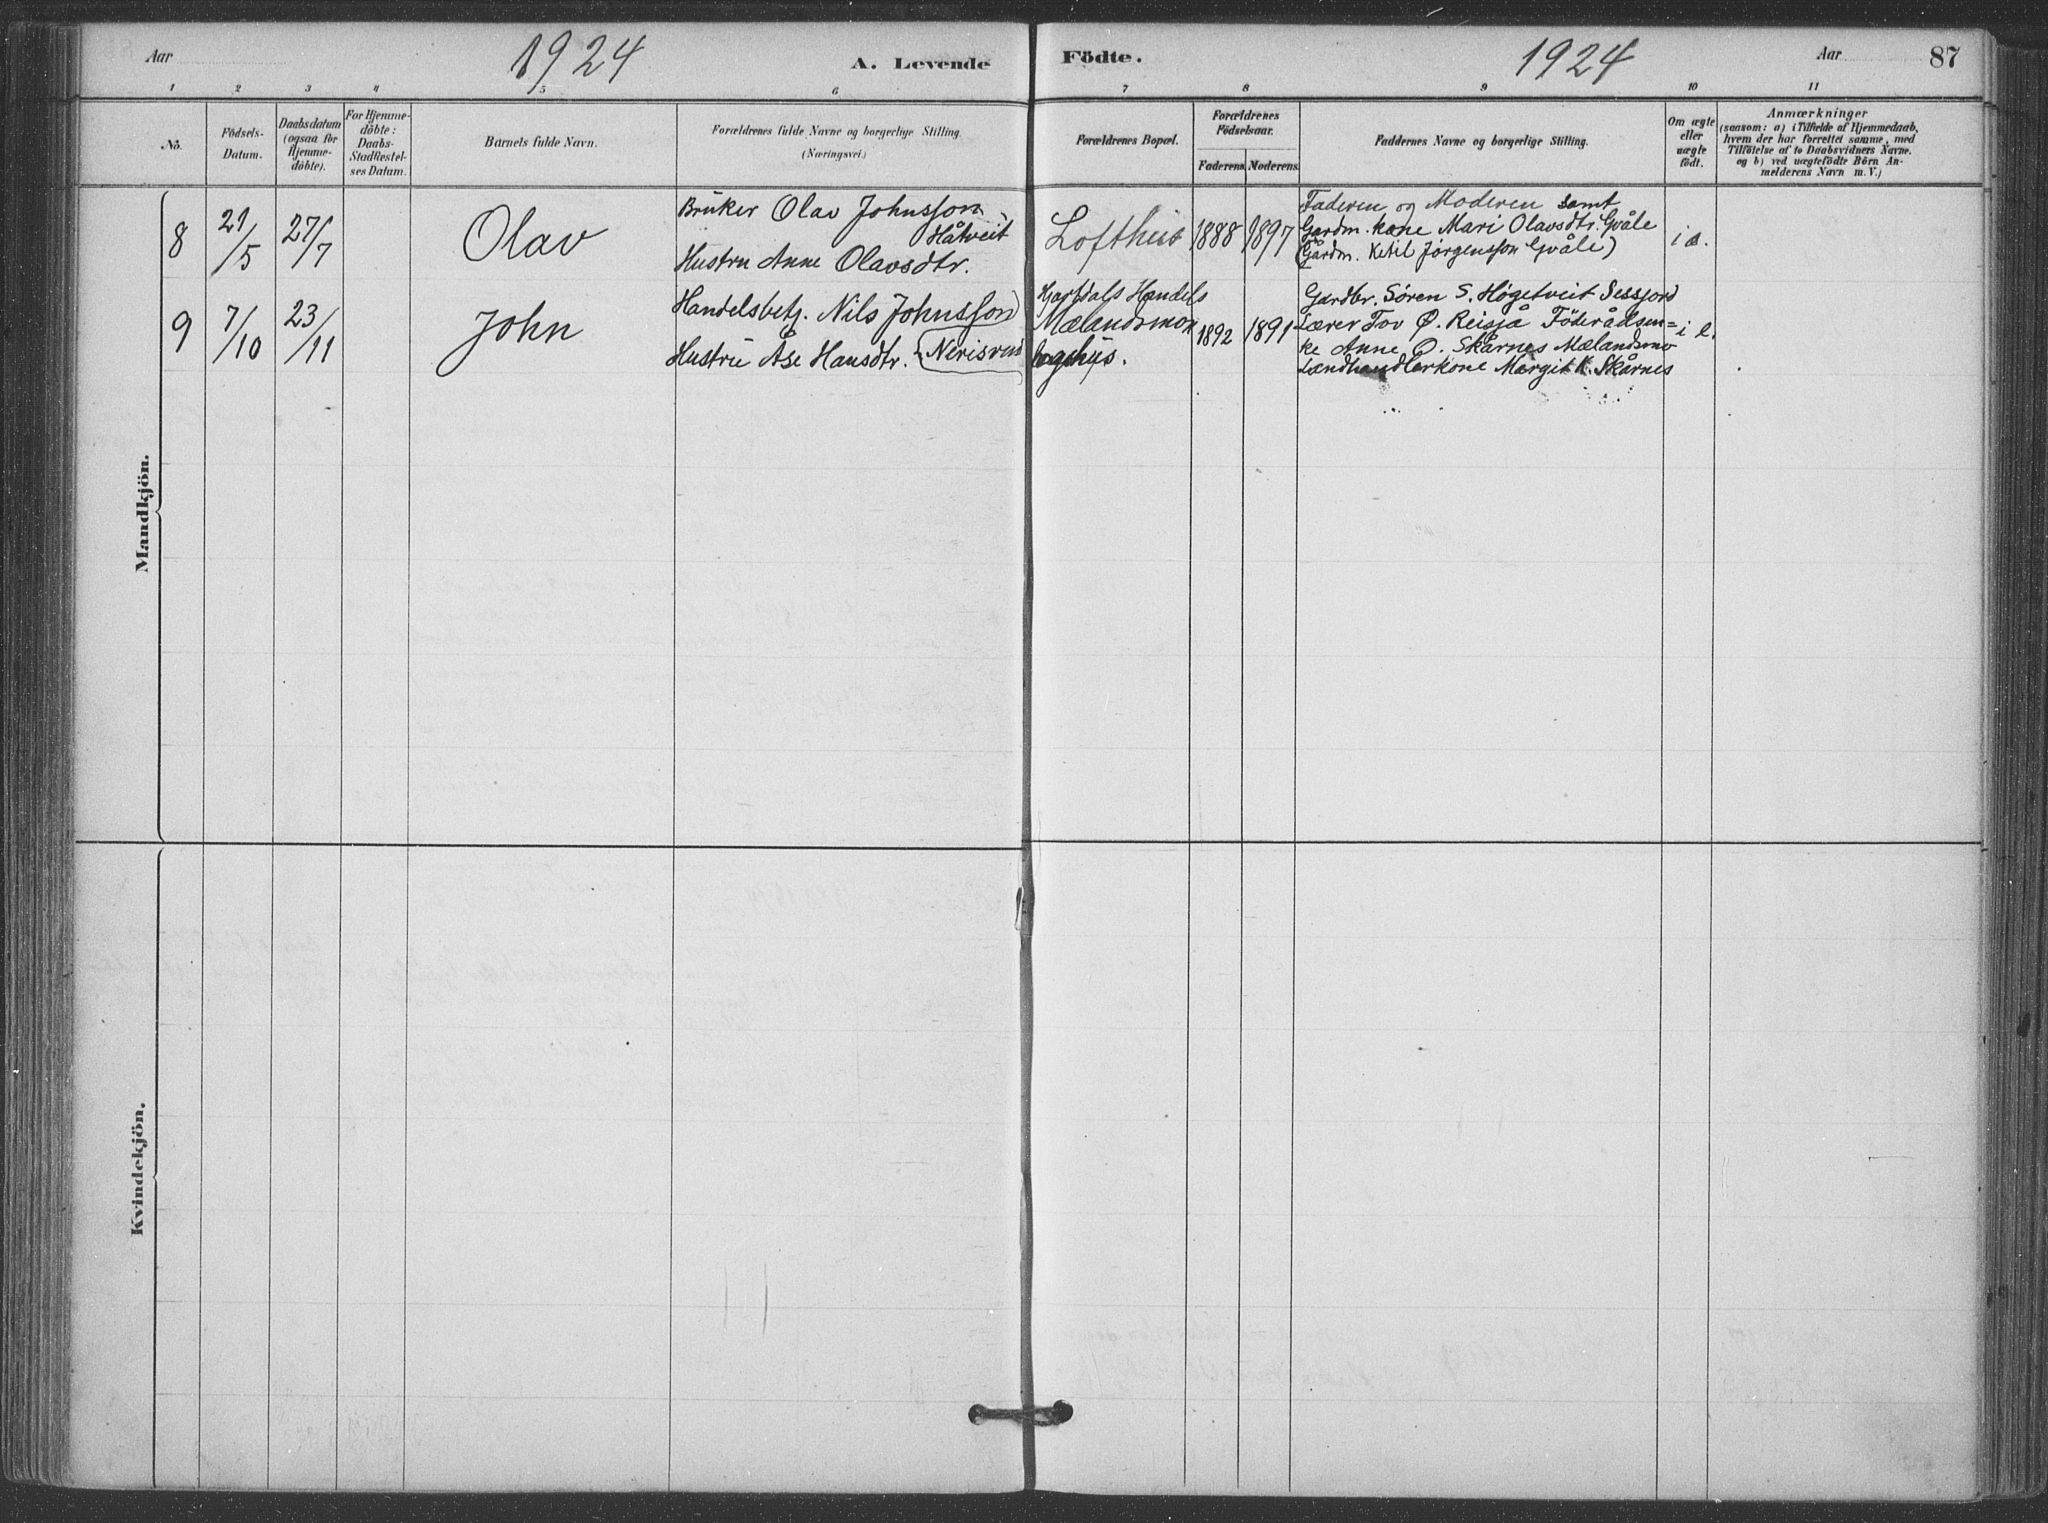 Aar
1924
A. Levende
Födte.
1924
Aar
87
1
2
3
4
5
6
7
8
9
10
11
No.
Födsels-
Datum.
Daabsdatum
(ogsaa for
Hjemme-
döbte).
For Hjemme-
döbte:
Daabs-
Stadfæstel-
ses Datum.
Barnets fulde Navn.
Forældrenes fulde Navne og borgerlige Stilling.
(Næringsvei.)
Forældrenes Bopæl.
Forældrenes
Födselsaar.
Faderens.
Moderens.
Faddernes Navne og borgerlige Stilling.
Om ægte
eller
uægte
födt.
Anmærkninger
(saasom: a) i Tilfælde af Hjemmedaab,
hvem der har forrettet samme, med
Tilföielse af to Daabsvidners Navne.
og b) ved uægtefödte Börn An-
melderens Navn m. V.)
Mandkjön.
8
21/5
27/7
Olav
Bruker Olav Johnsson
Håtveit
Hustru Anne Olavsdtr.
Lofthus
1888
1897
Faderen og Moderen samt
Gardm. kone Mari Olavsdtr. Gvåle
(Gårdm. Ketil Jørgensson Gvåle)
9
7/10
23/11
John
Handelsbetj. Nils Johnsson
Hustru Åse Hansdtr.
Hartdals Handels
Mælandsmon
1892
1891
Gardbr. Søren S. Høgetveit Sessjord
Lærer Tov Ø. Reisjå Föderådsen=
ke Anne O. Skårnes Mælandsmo
Landhandlerkone Margit K. Skårnes
Kvindekjön.